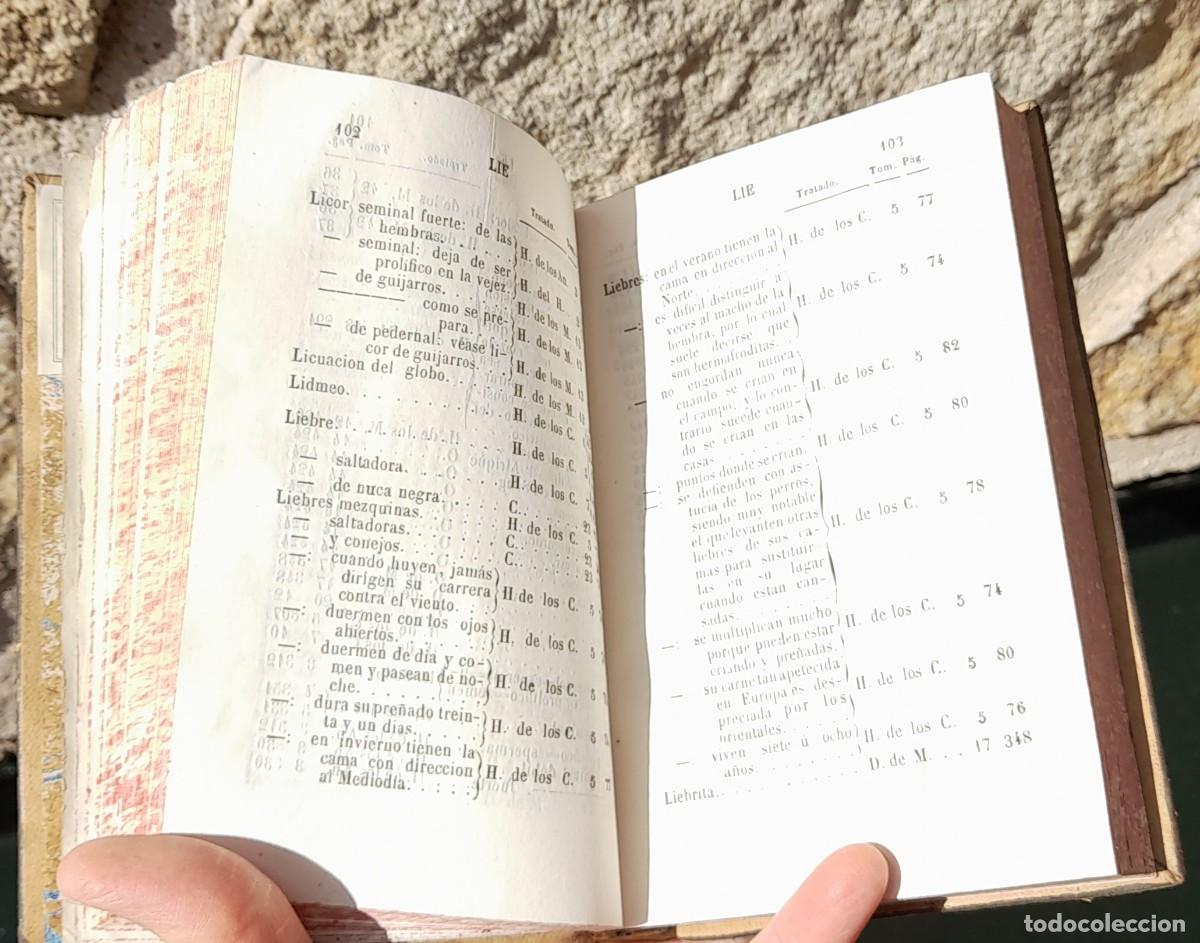 102
LIE
Tratado.
Licor seminal fuerte: de las
hembras. . . . . H. de los An. 3
— seminal: deja de ser
prolífico en la vejez. H. del H.
— de guijarros. . . . . H. de los M.
——— como se pre-
para. . . . H. de los M.
— de pedernal: véase li-
cor de guijarros. H. de los M.
Licuacion del globo. . . . . H. de los M.
Lidmeo. . . . . . . . . . H. de los C.
Liebre. . . . . . . . . . H. de los C.
— saltadora. . . . . H. de los C.
— de nuca negra. . . . C. . . . . . . 23
Liebres mezquinas. . . . . H. de los C.
— saltadoras. . . . . C. . . . . . . 23
— y conejos. . . . . C. . . . . . . 23
—: cuando huyen, jamás
dirigen su carrera
contra el viento. . . H de los C. 5
—: duermen con los ojos
abiertos. . . . . . H. de los C. 5
—: duermen de dia y co-
men y pasean de no-
che. . . . . . . . H. de los C. 5
—: dura su preñado trein-
ta y un dias. . . . H. de los C. 5
—: en invierno tienen la
cama con direccion
al Mediodia. . . . . H. de los C. 5 7
103
LIE
Tratado. Tom. Pág.
Liebres: en el verano tienen la
cama en direccion al
Norte. . . . . . . H. de los C. 5 77
—: es dificil distinguir á
veces al macho de la
hembra, por lo cual
suele decirse que
son hermafroditas. . H. de los C. 5 74
— no engordan nunca
cuando se crian en
el campo; y lo con-
trario sucede cuan-
do se crian en las
casas. . . . . . . H. de los C. 5 82
—: puntos donde se crian. H. de los C. 5 80
— se defienden con as-
tucia de los perros,
siendo muy notable
el que levanten otras
liebres de sus ca-
mas para sustituir
las en su lugar
cuando estan can-
sadas. . . . . . . H. de los C. 5 78
—: se multiplican mucho
porque pueden estar
criando y preñadas. H. de los C. 5 74
— su carne tan apetecida
en Europa es des-
preciada por los
orientales. . . . . H. de los C. 5 80
— viven siete ú ocho
años. . . . . . . H. de los C. 5 76
Liebrita. . . . . . . . . D. de M. . . 17 348
todocoleccion